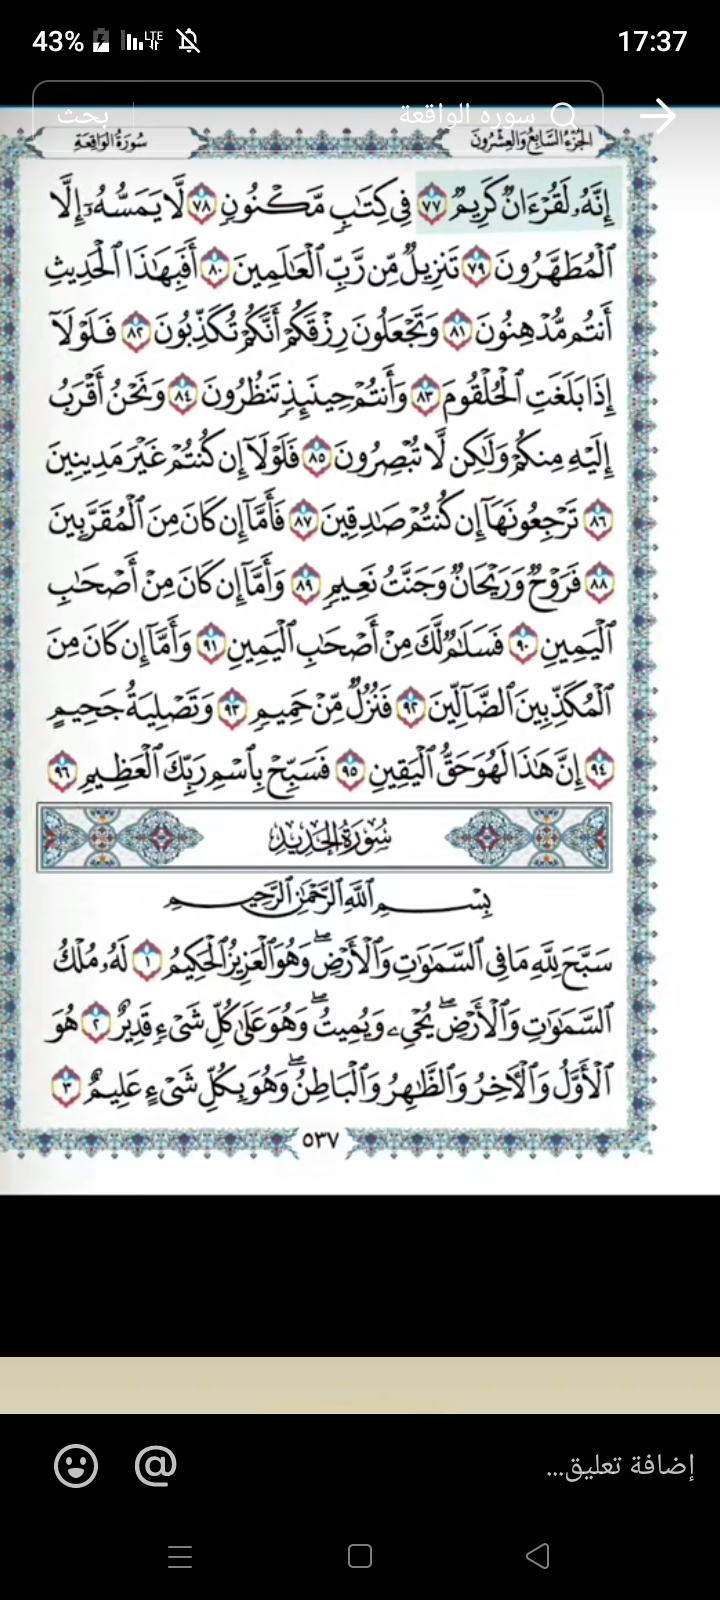 43% LTE 17:37
سوره الواقعة بحث
الجزء السابع والعشرون سورة الواقعة
إِنَّهُۥ لَقُرْءَانٌ كَرِيمٌ ٧٧ فِى كِتَٰبٍ مَّكْنُونٍ ٧٨ لَّا يَمَسُّهُۥٓ إِلَّا
ٱلْمُطَهَّرُونَ ٧٩ تَنزِيلٌ مِّن رَّبِّ ٱلْعَٰلَمِينَ ٨٠ أَفَبِهَٰذَا ٱلْحَدِيثِ
أَنتُم مُّدْهِنُونَ ٨١ وَتَجْعَلُونَ رِزْقَكُمْ أَنَّكُمْ تُكَذِّبُونَ ٨٢ فَلَوْلَآ
إِذَا بَلَغَتِ ٱلْحُلْقُومَ ٨٣ وَأَنتُمْ حِينَئِذٍ تَنظُرُونَ ٨٤ وَنَحْنُ أَقْرَبُ
إِلَيْهِ مِنكُمْ وَلَٰكِن لَّا تُبْصِرُونَ ٨٥ فَلَوْلَآ إِن كُنتُمْ غَيْرَ مَدِينِينَ
٨٦ تَرْجِعُونَهَآ إِن كُنتُمْ صَٰدِقِينَ ٨٧ فَأَمَّآ إِن كَانَ مِنَ ٱلْمُقَرَّبِينَ
٨٨ فَرَوْحٌ وَرَيْحَانٌ وَجَنَّتُ نَعِيمٍ ٨٩ وَأَمَّآ إِن كَانَ مِنْ أَصْحَٰبِ
ٱلْيَمِينِ ٩٠ فَسَلَٰمٌ لَّكَ مِنْ أَصْحَٰبِ ٱلْيَمِينِ ٩١ وَأَمَّآ إِن كَانَ مِنَ
ٱلْمُكَذِّبِينَ ٱلضَّآلِّينَ ٩٢ فَنُزُلٌ مِّنْ حَمِيمٍ ٩٣ وَتَصْلِيَةُ جَحِيمٍ
٩٤ إِنَّ هَٰذَا لَهُوَ حَقُّ ٱلْيَقِينِ ٩٥ فَسَبِّحْ بِٱسْمِ رَبِّكَ ٱلْعَظِيمِ ٩٦
سورة الحديد
بِسْمِ ٱللَّهِ ٱلرَّحْمَٰنِ ٱلرَّحِيمِ
سَبَّحَ لِلَّهِ مَا فِى ٱلسَّمَٰوَٰتِ وَٱلْأَرْضِ ۖ وَهُوَ ٱلْعَزِيزُ ٱلْحَكِيمُ ١ لَهُۥ مُلْكُ
ٱلسَّمَٰوَٰتِ وَٱلْأَرْضِ ۖ يُحْىِۦ وَيُمِيتُ ۖ وَهُوَ عَلَىٰ كُلِّ شَىْءٍ قَدِيرٌ ٢ هُوَ
ٱلْأَوَّلُ وَٱلْءَاخِرُ وَٱلظَّٰهِرُ وَٱلْبَاطِنُ ۖ وَهُوَ بِكُلِّ شَىْءٍ عَلِيمٌ ٣
٥٣٧
إضافة تعليق...